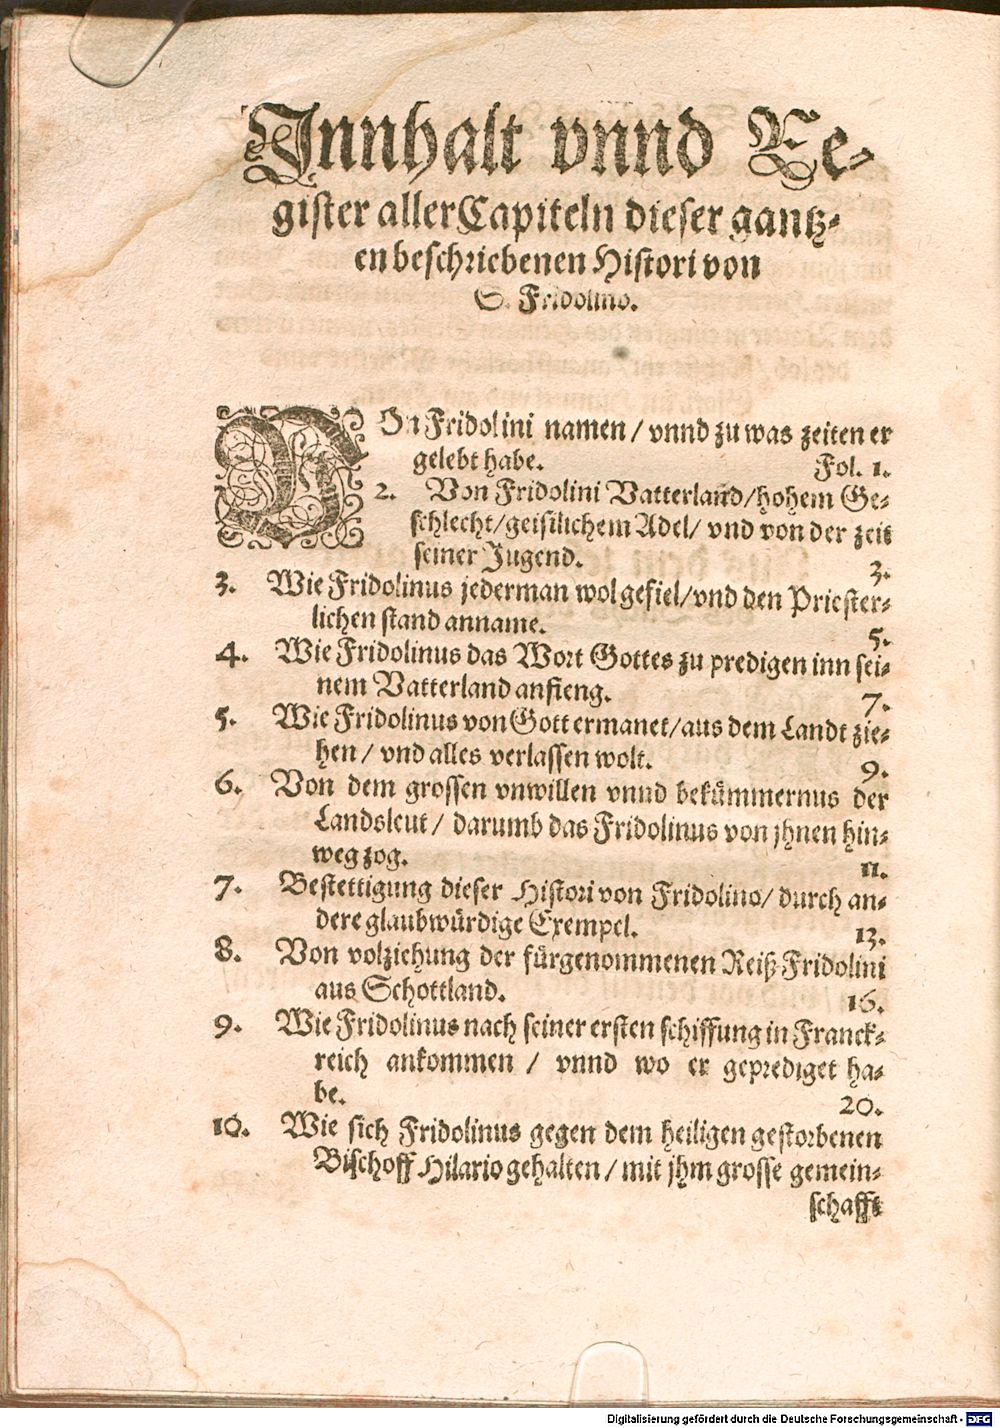 Innhalt vnnd Re-
gister aller Capiteln dieser gantz-
en beschriebenen Histori von
S. Fridolino.
VOn Fridolini namen / vnnd zu was zeiten er
gelebt habe. Fol. 1.
2. Von Fridolini Vatterland/hohem Ge-
schlecht/geistlichem Adel/ vnd von der zeit
seiner Jugend. 3.
3. Wie Fridolinus jederman wolgefiel/vnd den Priester-
lichen stand anname. 5.
4. Wie Fridolinus das Wort Gottes zu predigen inn sei-
nem Vatterland anfieng. 7.
5. Wie Fridolinus von Gott ermanet/aus dem Landt zie-
hen / vnd alles verlassen wolt. 9.
6. Von dem grossen vnwillen vnnd bekümmernus der
Landsleut / darumb das Fridolinus von jhnen hin-
weg zog. 11.
7. Bestettigung dieser Histori von Fridolino/ durch an-
dere glaubwürdige Exempel. 13.
8. Von volziehung der fürgenommenen Reiß Fridolini
aus Schottland. 16.
9. Wie Fridolinus nach seiner ersten schiffung in Franck-
reich ankommen / vnnd wo er geprediget ha-
be. 20.
10. Wie sich Fridolinus gegen dem heiligen gestorbenen
Bischoff Hilario gehalten / mit jhm grosse gemein-
schafft
Digitalisierung gefördert durch die Deutsche Forschungsgemeinschaft - DFG